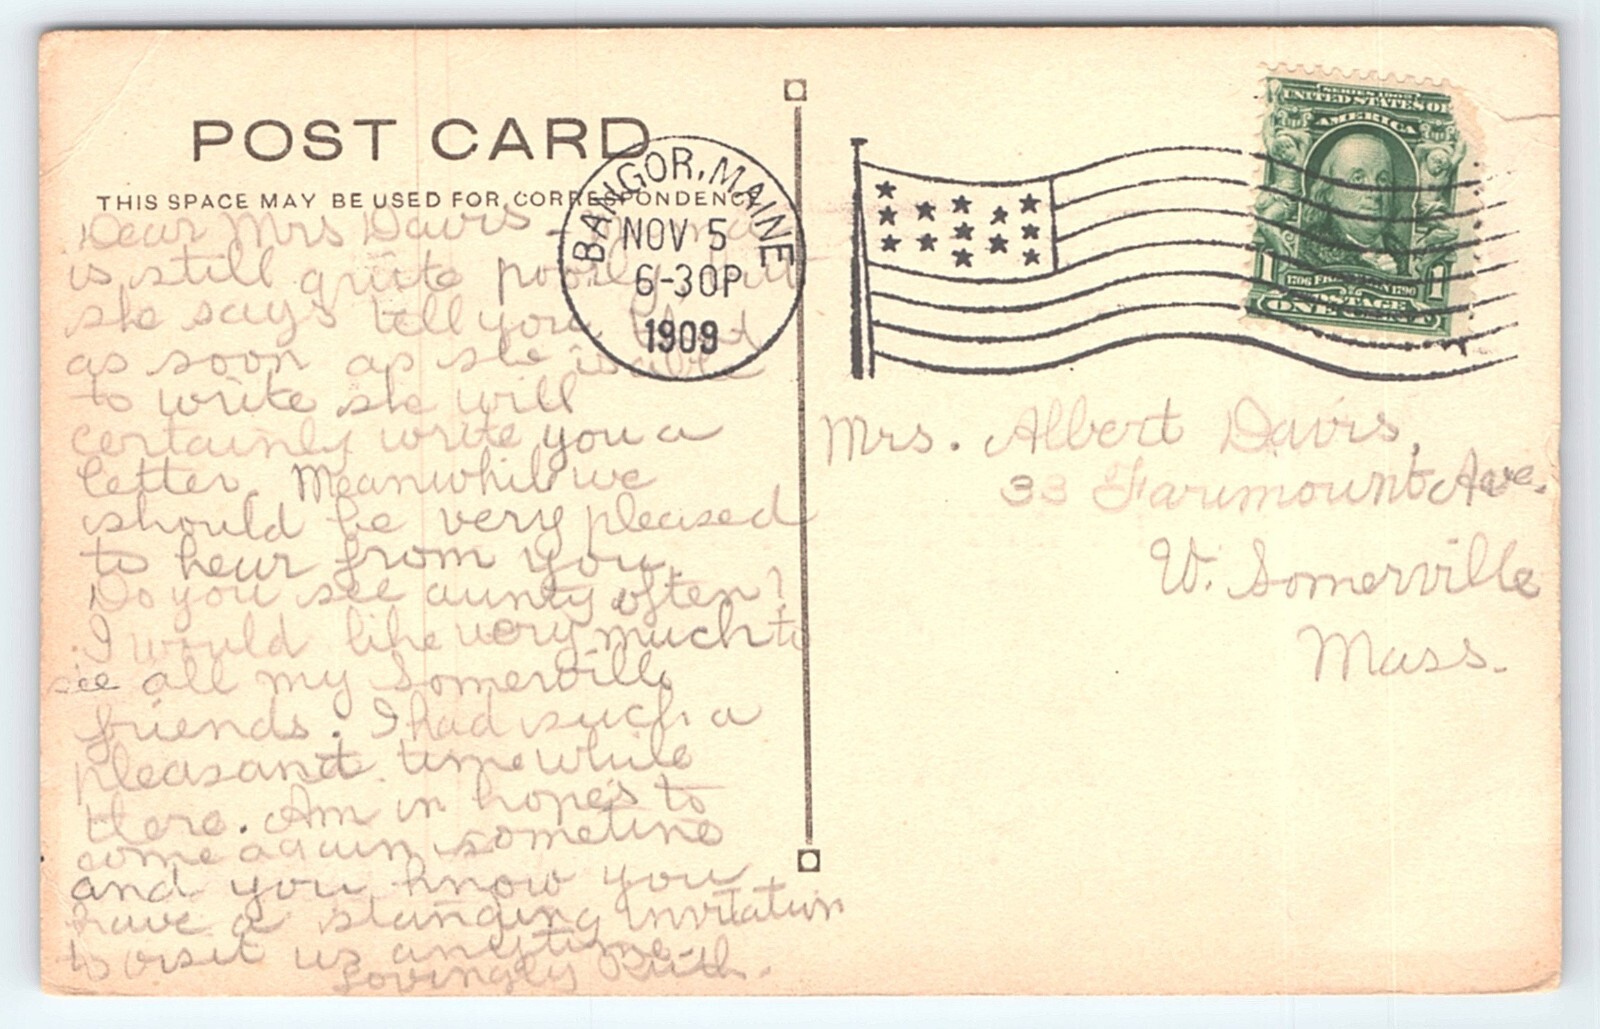 POST CARD
THIS SPACE MAY BE USED FOR CORRESPONDENCE
Dear Mrs Davis - Mama
is still quite poorly but
she says tell you that
as soon as she is able
to write she will
certainly write you a
letter. Meanwhile we
should be very pleased
to hear from you.
Do you see aunty often?
I would like very much to
see all my Somerville
friends. I had such a
pleasant time while
there. Am in hopes to
come again sometime
and you know you
have a standing invitation
to visit us anytime -
Lovingly Ruth.
BANGOR, MAINE
NOV 5
6-30P
1909
SERIES 1902
UNITED STATES OF
AMERICA
1706 FRANKLIN 1790
1 POSTAGE 1
ONE CENT
Mrs. Albert Davis,
33 Fairmount Ave.
W. Somerville
Mass.